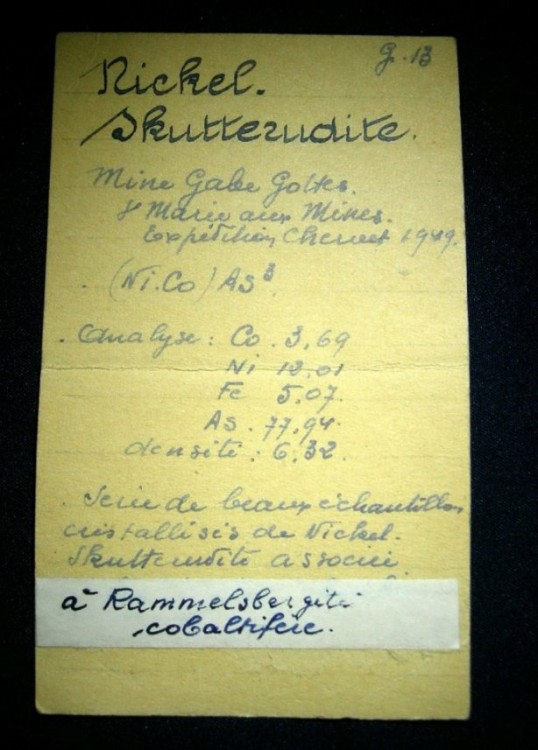 G. 13
Nickel.
Skutterudite.
Mine Gabe Gottes.
Ste Marie aux Mines.
Expédition Chervet 1949.
(Ni.Co) As³
Analyse: Co. 3,69
Ni 12.01
Fe 5,07.
As. 77,94.
densité: 6,32.
Serie de beaux échantillons
cristallisés de Nickel.
Skutterudite associée
à Rammelsbergite
cobaltifère.